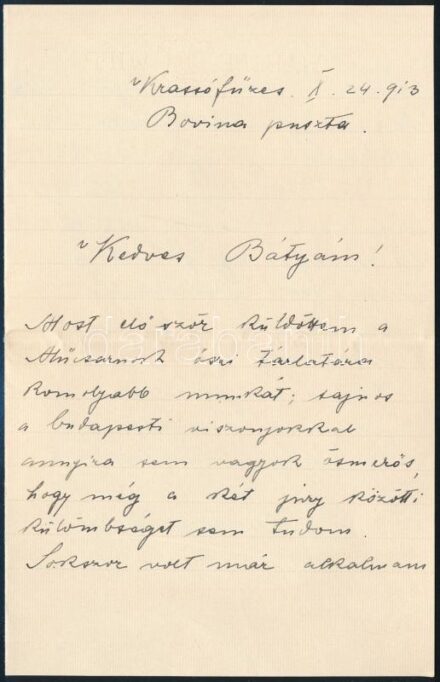 Krassófüzes. X. 24. 913
Bovina puszta.
Kedves Bátyám!
Most elő ször küldöttem a
Műcsarnok őszi tárlatára
komolyabb munkát; sajnos
a budapesti viszonyokkal
annyira sem vagyok ösmerős,
hogy még a két jury közötti
külömbséget sem tudom.
Sokszor volt már alkalmam
darabanth